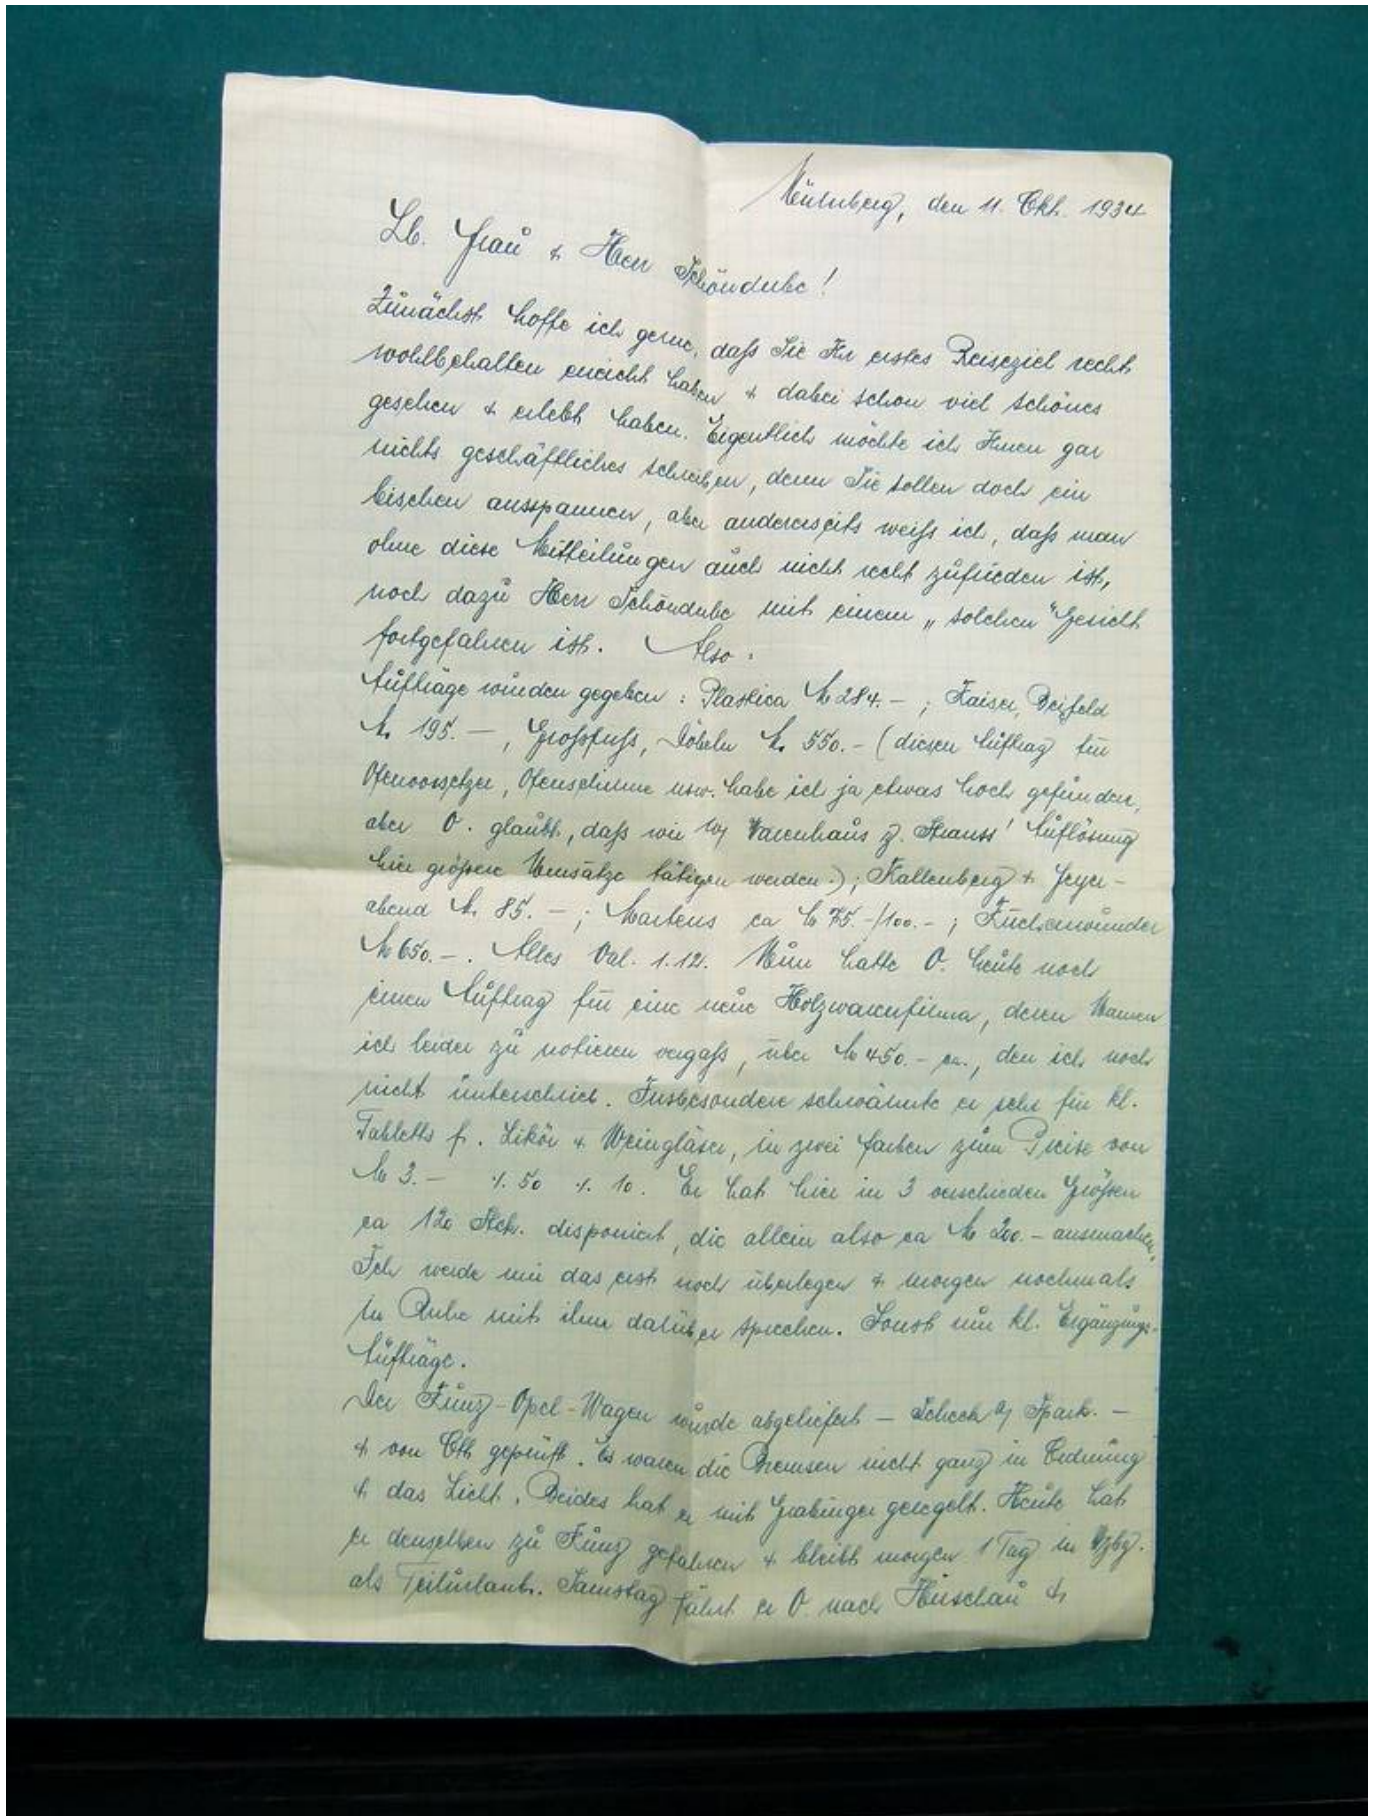 Nürnberg, den 11. Okt. 1934
Lb. Frau & Herr Schöndube!
Zunächst hoffe ich gerne, daß Sie Ihr erstes Reiseziel recht
wohlbehalten erreicht haben & dabei schon viel schönes
gesehen & erlebt haben. Eigentlich möchte ich Ihnen gar
nichts geschäftliches schreiben, denn Sie sollen doch ein
bischen ausspannen, aber andererseits weiß ich, daß man
ohne diese Mitteilungen auch nicht recht zufrieden ist,
noch dazu Herr Schöndube mit einem „solchen" Gesicht
fortgefahren ist. Also:
Aufträge wurden gegeben: Plastica M 284.-; Kaiser, Beifeld
M. 195.-, Großfuß, Döbeln M. 550.- (diesen Auftrag für
Ofenvorsetzer, Ofenschirme usw. habe ich ja etwas hoch gefunden,
aber O. glaubt, daß wir Warenhaus Strauss' Auflösung
hier größere Umsätze tätigen werden.); Kallenberg & Feyer-
abend M. 85.-; Martens ca M 75.-/100.-;
M 650.-. Alles Val. 1.12. Nun hatte O. heute noch
einen Auftrag für eine neue Holzwarenfirma, deren Namen
ich leider zu notieren vergaß, über M 450.- ca., den ich noch
nicht unterschrieb. Insbesondere schwärmte er sehr für kl.
Tabletts f. Likör & Weingläser, in zwei Farben zum Preise von
M 3.- ./. 50 ./. 10. Er hat hier in 3 verschieden Größen
ca 120 Stck. disponiert, die allein also ca M 200.- ausmachen.
Ich werde mir das erst noch überlegen & morgen nochmals
in Ruhe mit ihm darüber sprechen. Sonst nur kl. Ergänzungs-
Aufträge.
Der Künz-Opel-Wagen wurde abgeliefert - Scheck a/ Spark. -
& von Ott geprüft. Es waren die Bremsen nicht ganz in Ordnung
& das Licht. Beides hat er mit Grabinger geregelt. Heute hat
er denselben zu Künz gefahren & bleibt morgen 1 Tag in Wzbg.
als Teilurlaub. Samstag fährt er O. nach Hirschau &